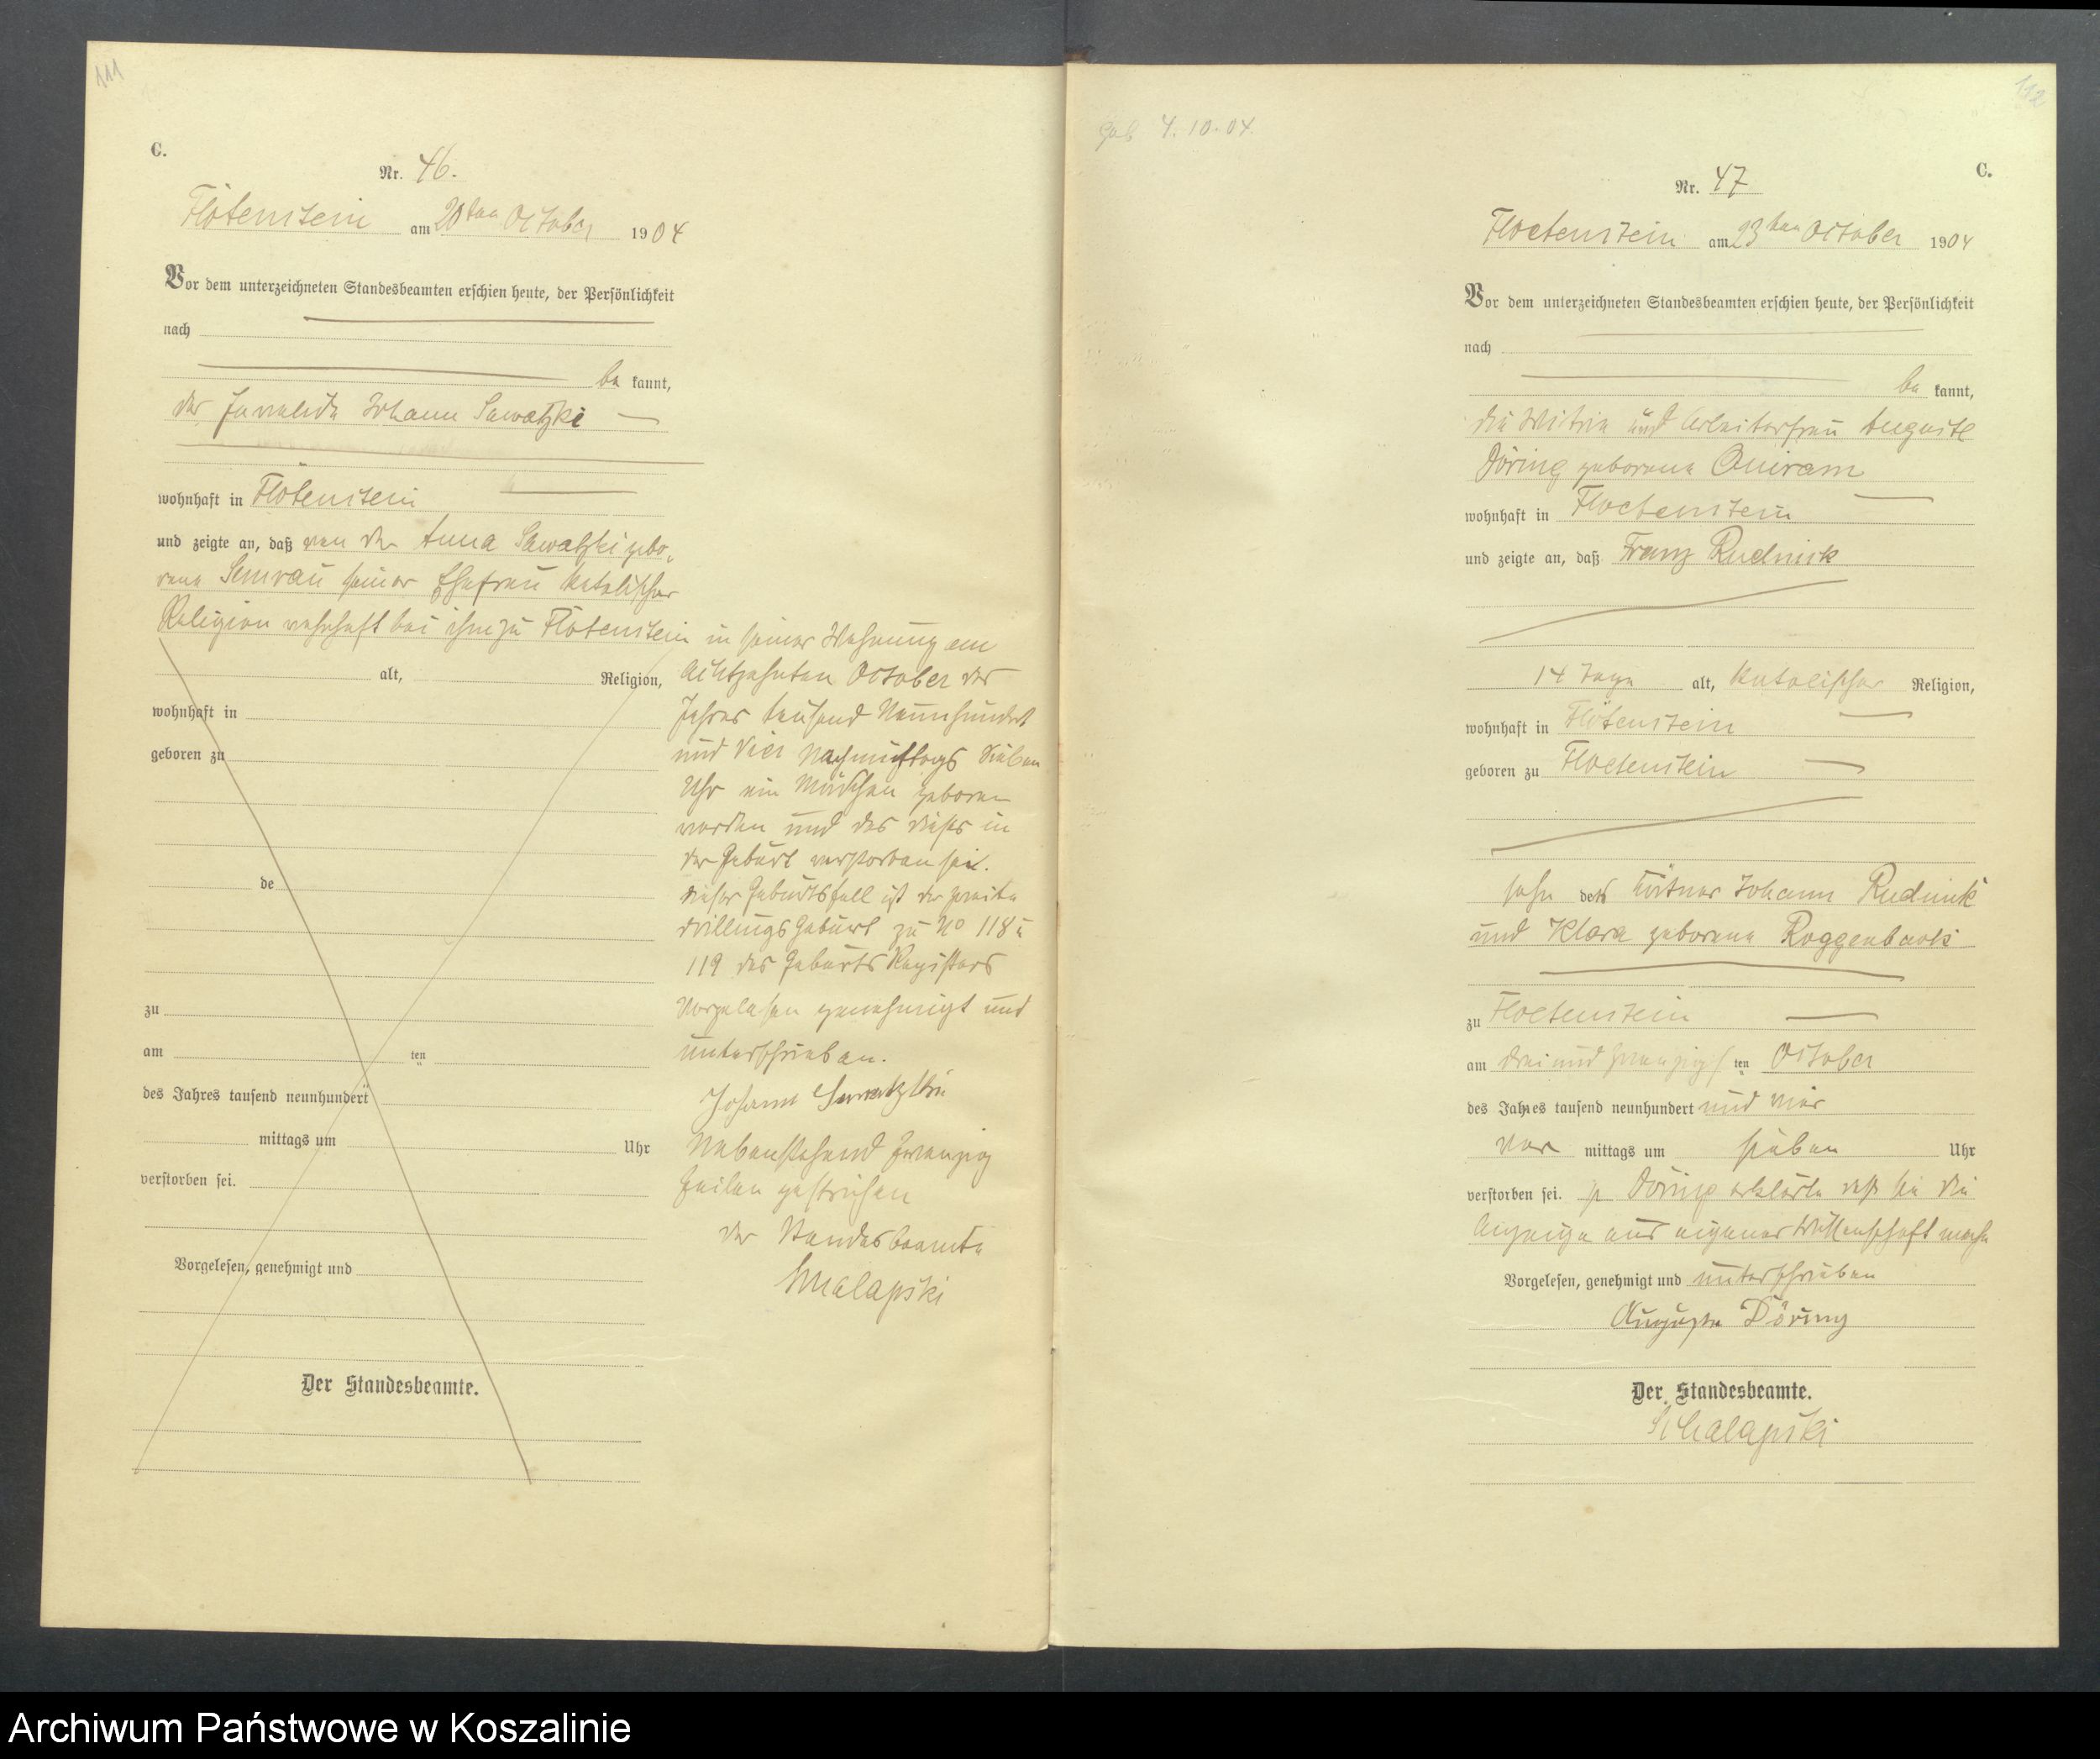 111
C.
Nr. 46.
Flötenstein am 20ten October 1904
Vor dem unterzeichneten Standesbeamten erschien heute, der Persönlichkeit
nach
be kannt,
der Invalide Johann Sawatzki
wohnhaft in Flötenstein
und zeigte an, daß von der Anna Sawatzki gebo-
rene Semrau seiner Ehefrau katolischer
Religion wohnhaft bei ihm zu Flötenstein in seiner Wohnung am
alt, Religion, achtzehnten October des
wohnhaft in Jahres tausend Neunhundert
geboren zu und Vier Nachmittags sieben
Uhr ein Mädchen geboren
worden und das dieses in
der Geburt verstorben sei.
de dieser Geburtsfall ist der zweite
drillings Geburt zu No 118 u
119 des Geburts Registers
zu Vorgelesen genehmigt und
am ten unterschrieben.
des Jahres tausend neunhundert Johann Sawatzki
mittags um Uhr Nebenstehend Zwanzig
verstorben sei. Zeilen gestrichen
der Standesbeamte
Vorgelesen, genehmigt und
Der Standesbeamte.
112
Geb 4.10.04.
C.
Nr. 47
Floetenstein am 23ten October 1904
Vor dem unterzeichneten Standesbeamten erschien heute, der Persönlichkeit
nach
be kannt,
die Witwe und Arbeiterfrau Auguste
Döring geborene
wohnhaft in Floetenstein
und zeigte an, daß Franz Rudnik
14 Tage alt, katolischer Religion,
wohnhaft in Flötenstein
geboren zu Floetenstein
sohn des Johann Rudnik
und Klara geborene Roggenbuck
zu Floetenstein
am drei und zwanzigs ten October
des Jahres tausend neunhundert und vier
vor mittags um sieben Uhr
verstorben sei. p Döring erklärte daß sie die
Anzeige aus eigener Wissenschaft mache
Vorgelesen, genehmigt und unterschrieben
Auguste Döring
Der Standesbeamte.
Archiwum Państwowe w Koszalinie